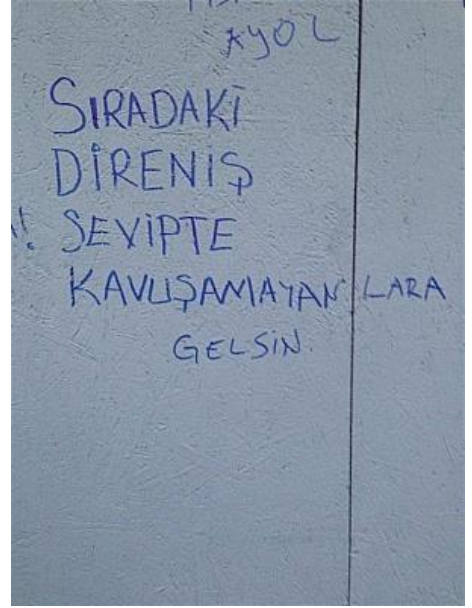 AYOL
SIRADAKİ
DİRENİŞ
SEVİPTE
KAVUŞAMAYANLARA
GELSİN.